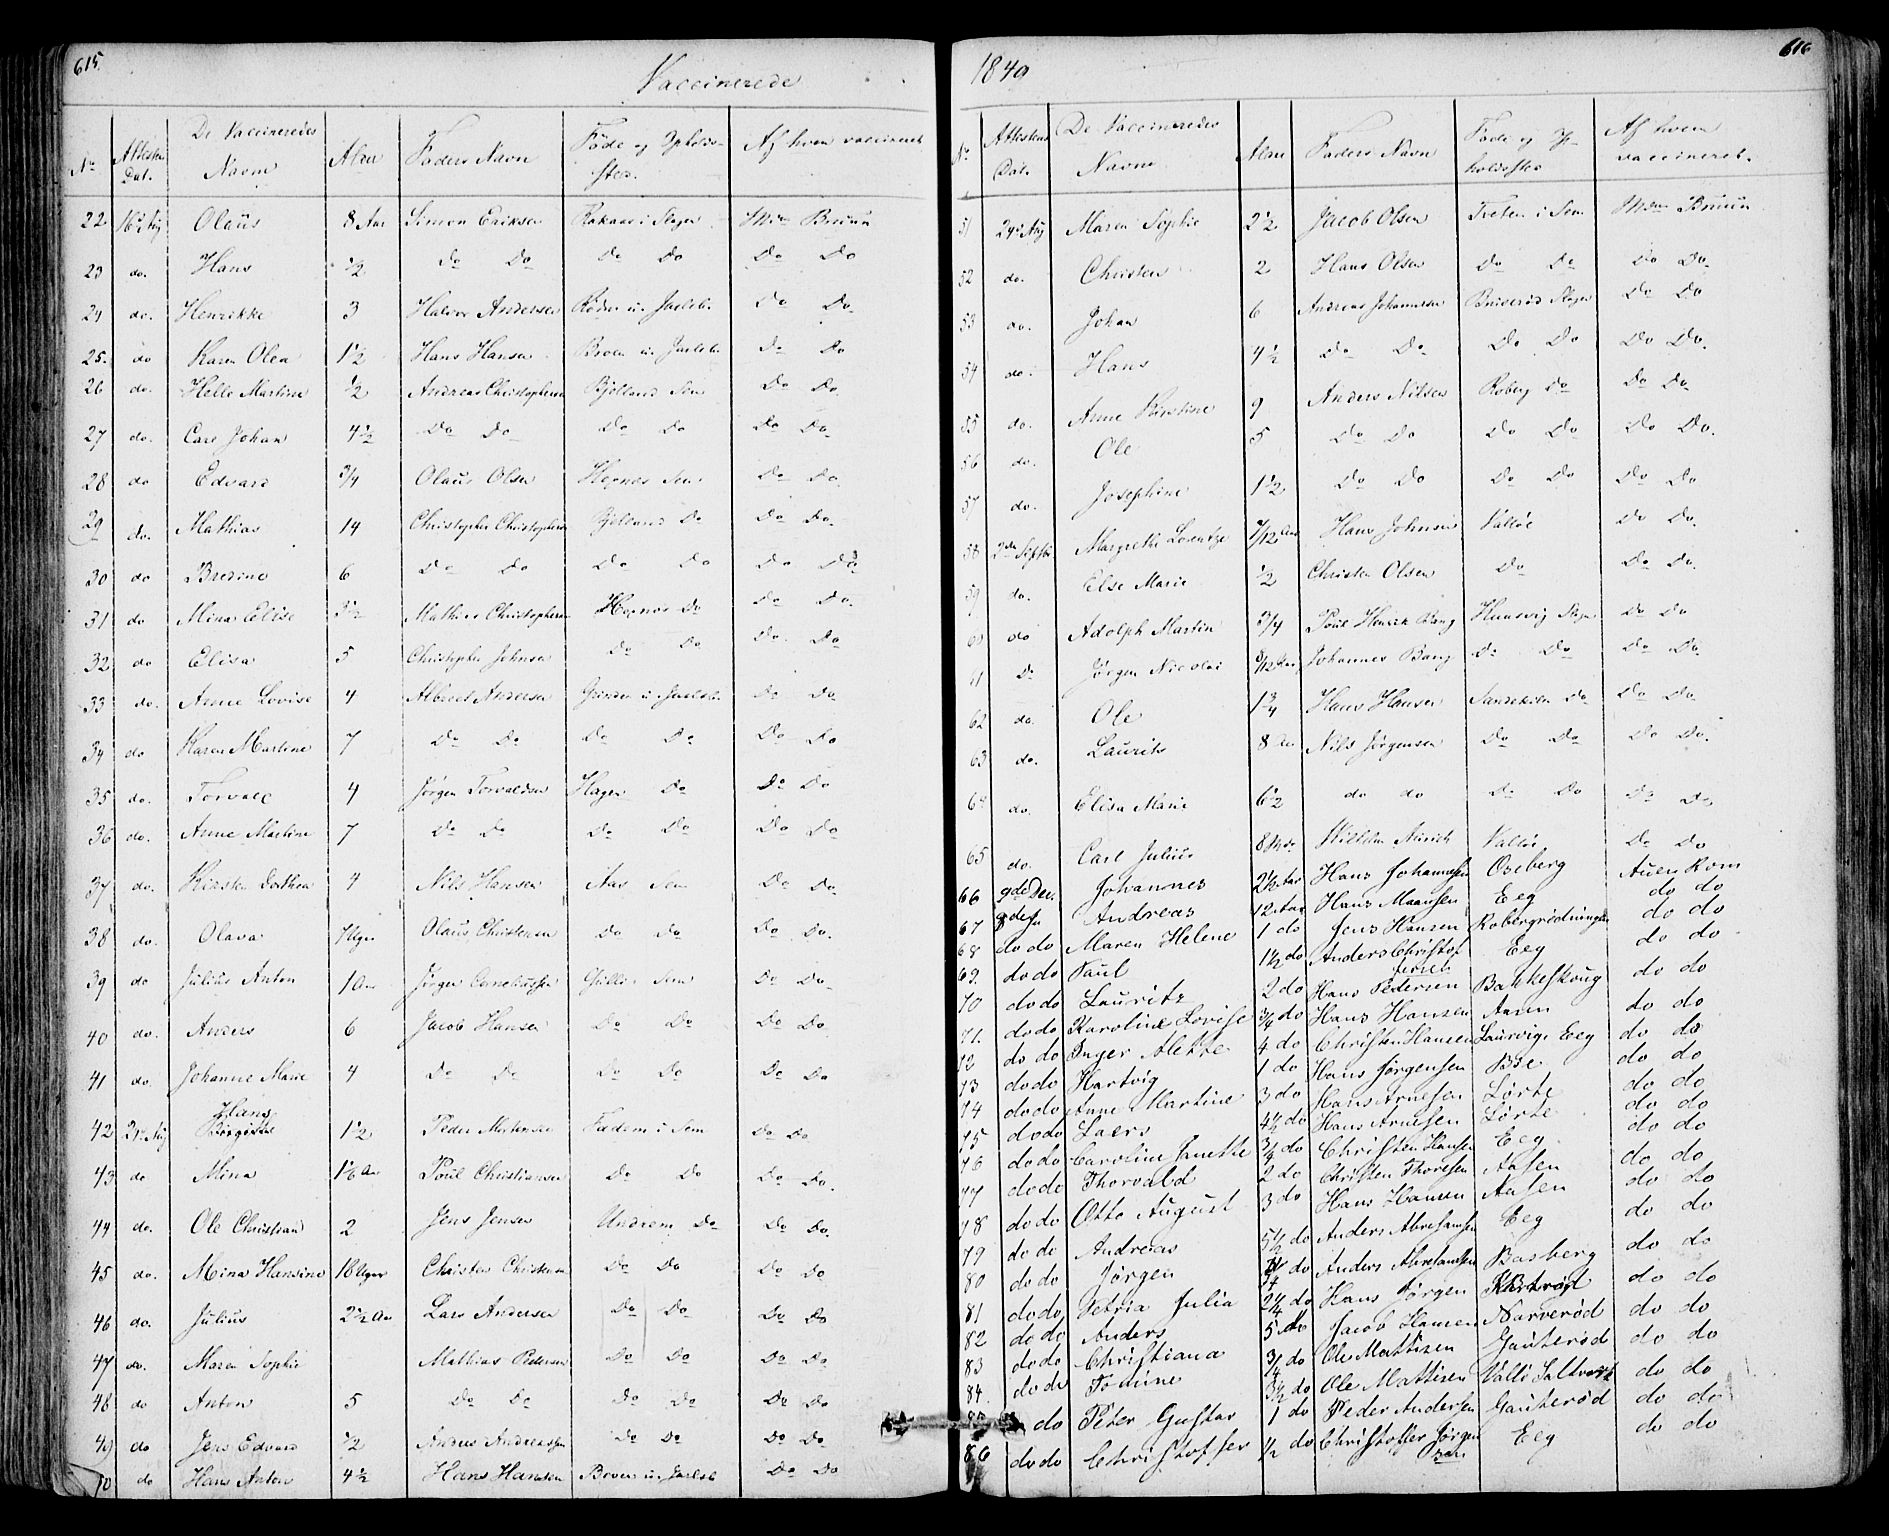 615.
Vaccinerede
No Attestens Dat. De Vaccineredes Navne Alder Faders Navn Føde og Opholdssted. Af hvem vaccineret
22 16de Aug Olaus 8 Aar Simon Eriksen i Slagen Bruun
23 do. Hans ½ Do Do Do Do Do Do
24 do. Henrikke 3 Halvor Andersen u. Jarlsb. Do Do
25. do Karen Olea 1½ Hans Hansen Broen u. Jarlsb. Do Do
26 do. Helle Martine ½ Andreas Christophersen Bjelland Sem Do Do
27 do. Carl Johan 4½ Do Do Do Do Do Do.
28 do Edvard 3/4 Olaus Olsen Hognes Sem Do Do.
29 do. Mathias 14 Christopher Christophersen Bjelland Do Do Do.
30 do Bredine 6 Do Do Do Do Do Do
31 do Mina Elise Mathias Christophersen Hognes Do Do Do.
32 do Elisa 5 Christopher Johnsen Do Do Do. Do
33 do. Anne Lovise 4 Albret Andersen u. Jarlsb. Do Do.
34 do Karen Martine 7 Do Do Do Do Do Do
35 do. Torvald 4 Jørgen Torvaldsen Hagen Do Do Do
36 do. Anne Martine 7 Do Do Do Do Do Do
37 do. Kirsten Dorthea 4 Nils Hansen Aas Sem Do Do.
38 do. Olava 7 Uger Olaus Christensen Do Do Do Do.
39 do Julius Anton 1 Aar Jørgen Corneliussen Gulli Sem Do Do.
40 do. Anders 6 Jacob Hansen Do Do Do Do
41 do. Johanne Marie 4 Do Do Do Do Do Do
42 21de Aug Hans 1½ Peder Mortensen i Sem Do Do
43 do Mina Aar Poul Christiansen Do Do Do Do.
44 do. Ole Christian 2 Jens Jensen Undrum Do Do Do.
45 do. Mina Hansine 18 Uger Christen Christensen Do Do Do Do
46 do. Julius 2½ Aar Lars Andersen Do Do Do Do
47 do. Maren Sophie Mathias Pedersen Do Do Do Do
48 do Anton 5 Do Do Do Do Do Do
49 do Jens Edvard ½ Anders Andreassen Do Do Do Do
50 do Hans Anton 4½ Hans Hansen Broen u. Jarlsb Do Do
1849
616
No Attestens Dat. De Vaccineredes Navne Alder Faders Navn Føde og Opholdssted Af hvem vaccineret.
51 29de Aug Maren Sophie 2½ Jacob Olsen i Sem Bruun
52 do. Christen 2 Hans Olsen Do Do Do Do.
53 do. Johan 6 Andreas Johannesen Slagen Do Do
54 do. Hans 4½ Do Do Do Do Do Do.
55 do. Anne Kirstine 9 Anders Nilsen Roberg Do Do Do.
56 do. Ole 5 Do Do Do Do Do Do.
57 do. Josephine 1½ Do Do Do Do Do Do
58 2den Septbr Margrethe Lorentze 7/12 Aar Hans Johnsen Valløe Do Do.
59 do. Else Marie ½ Christen Olsen Do Do Do.
60 do Adolph Martin 3/4 Poul Henrik Bang Slagen Do Do
61 Do Jørgen Nicolai 8/12 Aar Johannes Bang Do Do Do Do.
62 do. Ole 1¾ Hans Hansen Do Do Do
63 do. Laurits 8 Aar Nils Jørgensen Do Do Do Do.
64 do. Elisa Marie 6½ do do Do Do Do Do,
65 do. Carl Julius 8 Valløe Do Do
66 9de Dec. Johannes 2½ Aar Hans Johannesen Oseberg
67 8de Andreas 12 Aar Hans Maansen Eeg do do
68 do do Maren Helene 1 do Jens Hansen Robergrødningen do do
69. do do Paul 1½ do Anders Christof fersen Eeg do do
70 do do Lauritz 2 do Hans Pedersen Bakkeskoug do do
71. do do Karoline Lovise 3/4 do Hans Hansen Aarn do do
72 do do Inger Alette 4 do Christen Hansen Laurvigs Eeg do do
73 do do Hartvig 1 do Hans Jørgensen Bøe do do
74 do do Anne Martine 3 do Hans Arnesen Lørte do do
75 do do Laers 4½ do Hans Arnesen Lørte do do
76 do do Caroline Anette 3/4 do Christen Hansen Eeg do do
77 do do Thorvald 2 do Christen Thoresen Aasen do do
78 do do Otto August 3 do Hans Hansen Aasen do do
79 do do Andreas 5½ do Anders Abrahamsen Eeg do do
80 do do Jørgen do Anders Abrahamsen Basberg do do
81 do do Petria Julia 2¼ do Hans Jørgen do do
82 do do Anders 5 do Jacob Hansen Narverød do do
83 do do Christiana 3/4 do Ole Mattisen Gauterød do do
84. do do Tomine 3½ do Ole Mattisen Vallø Saltværk do do
85 do Peter Gustav 1 do Peder Andersen Gauterød do do
86 do do Christoffer ½ do Christoffer Jørgen sen Eeg do do